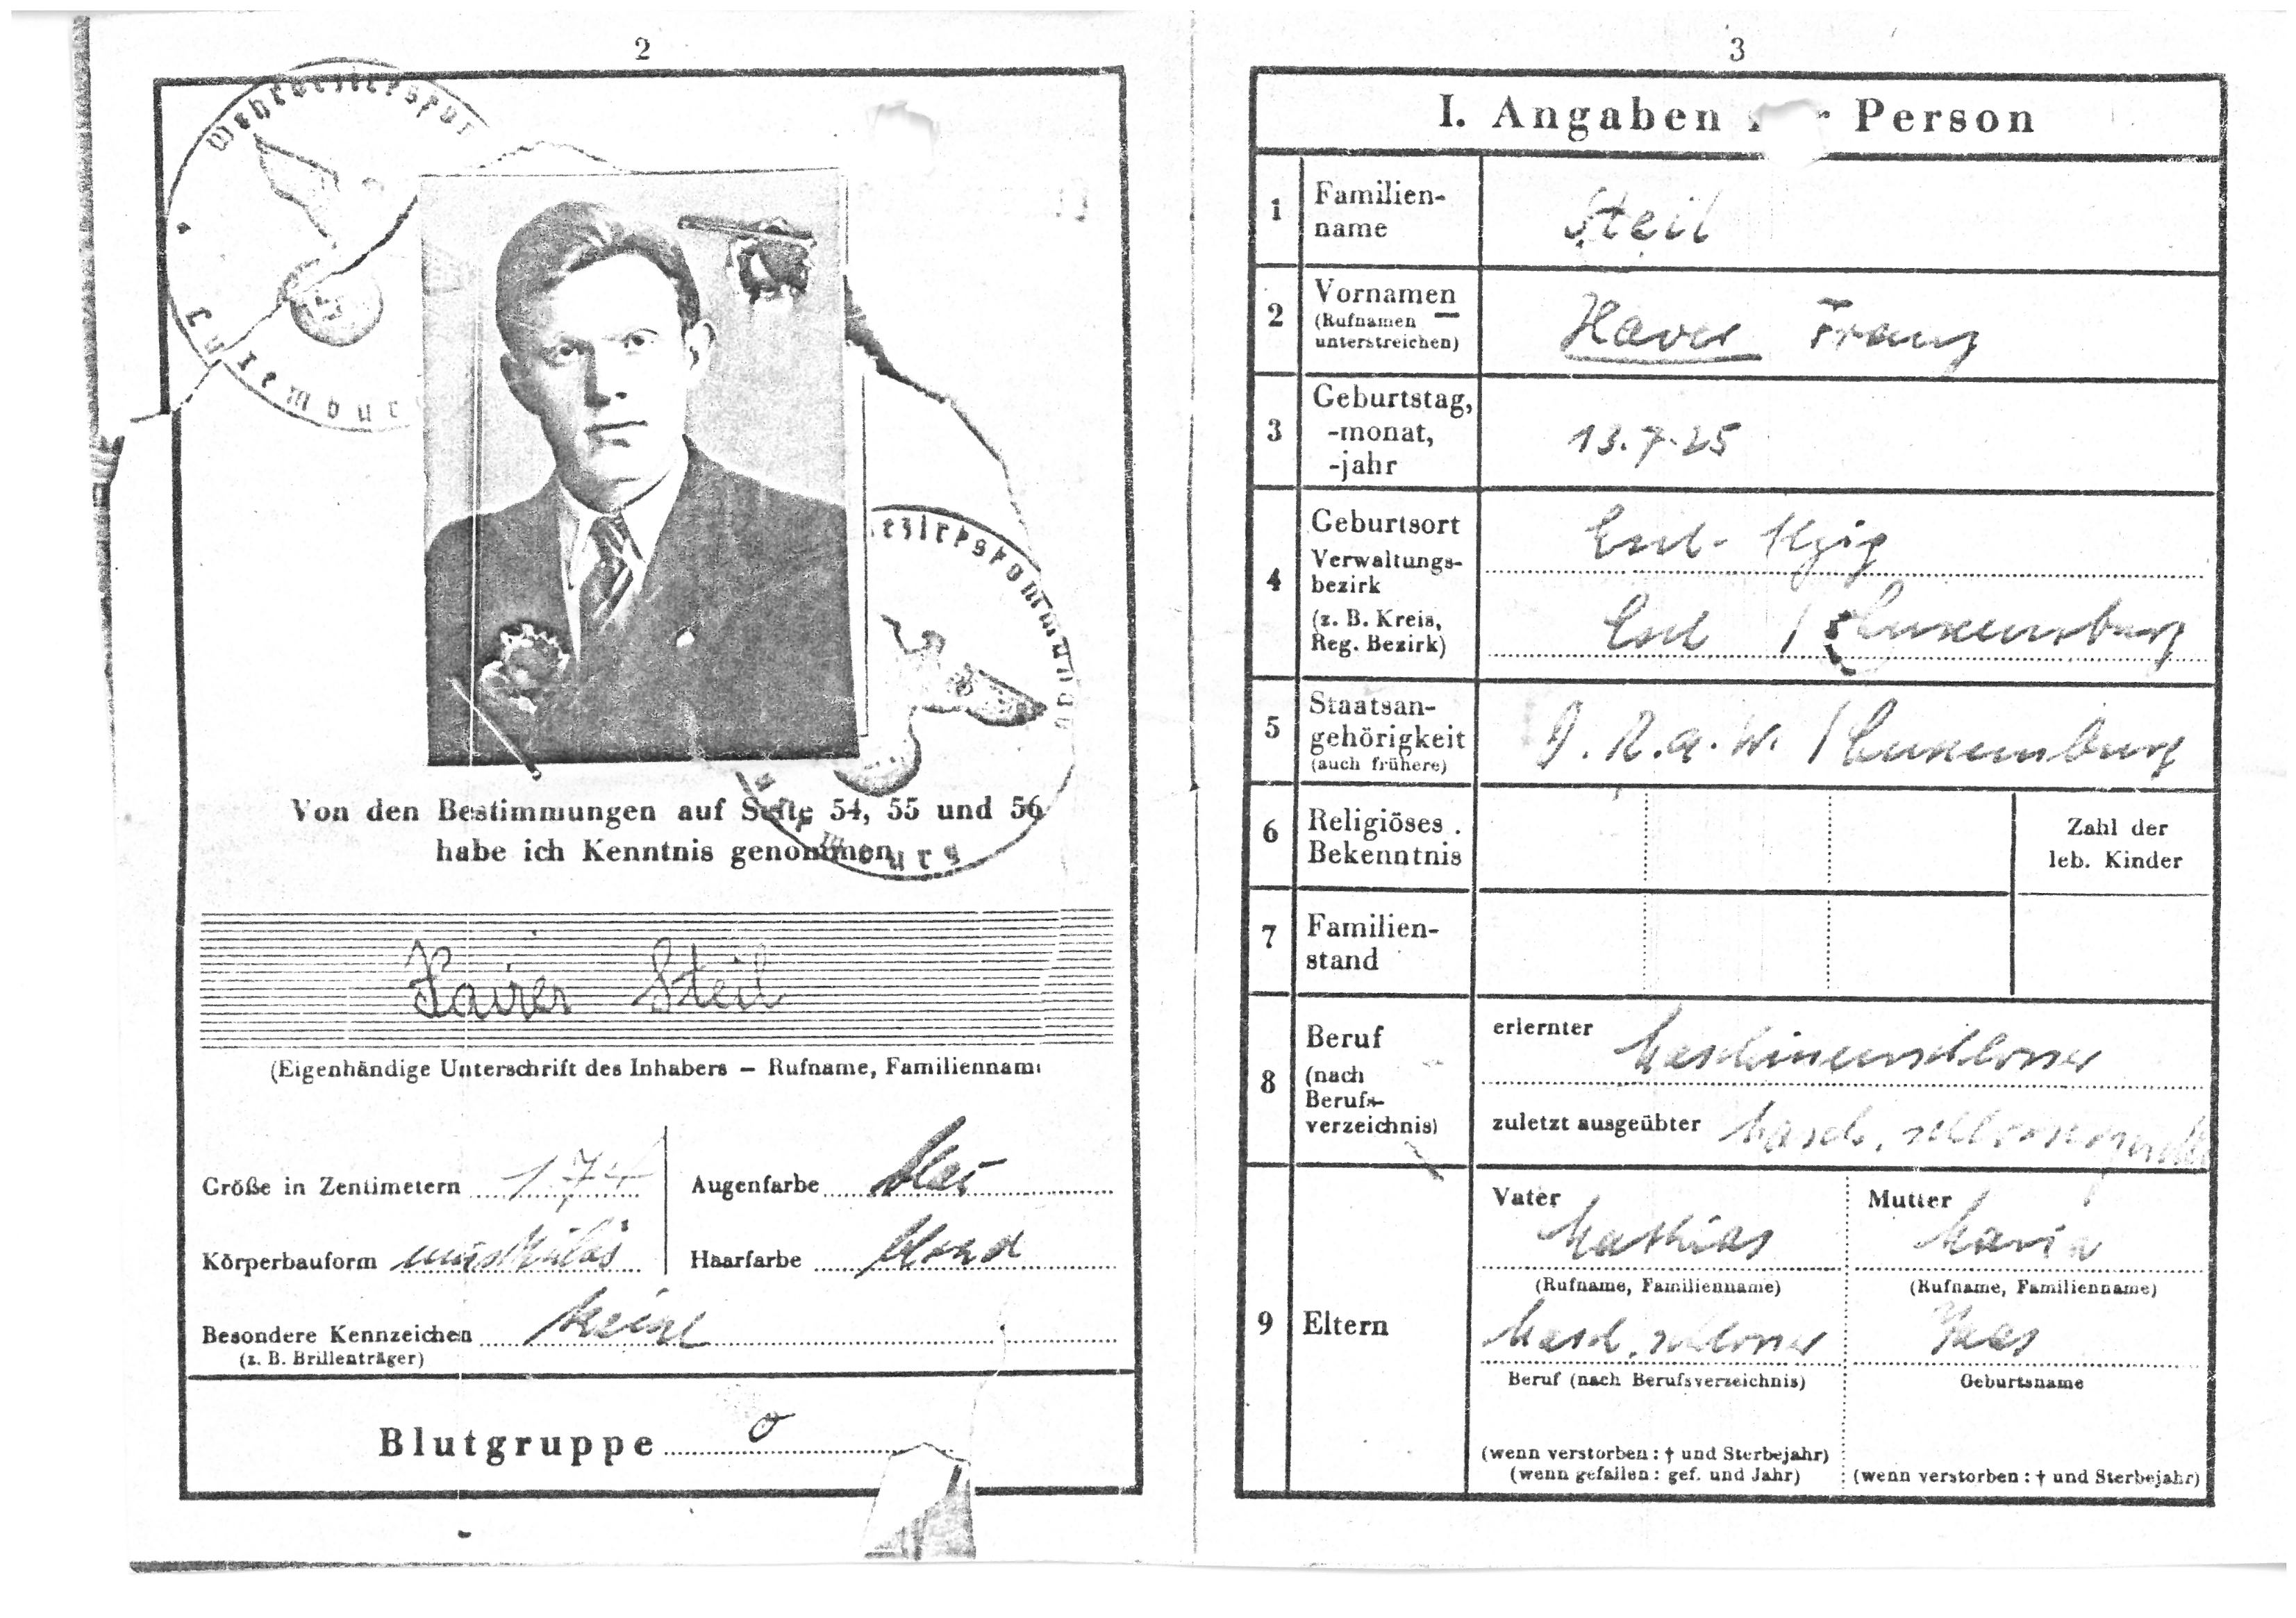 2
Wehrbezirkskom
Luxemburg
Von den Bestimmungen auf Seite 54, 55 und 56
habe ich Kenntnis genommen
Xavier Steil
(Eigenhändige Unterschrift des Inhabers – Rufname, Familienname
Größe in Zentimetern 174
Augenfarbe blau
Körperbauform muskulös
Haarfarbe blond
Besondere Kennzeichen keine
(z. B. Brillenträger)
Blutgruppe 0
3
I. Angaben Person
1 Familien-
name
Steil
2 Vornamen
(Rufnamen
unterstreichen)
Xaver Franz
3 Geburtstag,
-monat,
-jahr
13.7.25
4 Geburtsort
Verwaltungs-
bezirk
(z. B. Kreis,
Reg. Bezirk)
Esch-Alzig
Esch / Luxemburg
5 Staatsan-
gehörigkeit
(auch frühere)
D.R.a.W. / Luxemburg
6 Religiöses
Bekenntnis
Zahl der
leb. Kinder
7 Familien-
stand
8 Beruf
(nach
Berufs-
verzeichnis)
erlernter Maschinenschlosser
zuletzt ausgeübter Masch.
9 Eltern
Vater
Mathias
(Rufname, Familienname)
Masch. schlosser
Beruf (nach Berufsverzeichnis)
(wenn verstorben: † und Sterbejahr)
(wenn gefallen: gef. und Jahr)
Mutter
Maria
(Rufname, Familienname)
Geburtsname
(wenn verstorben: † und Sterbejahr)